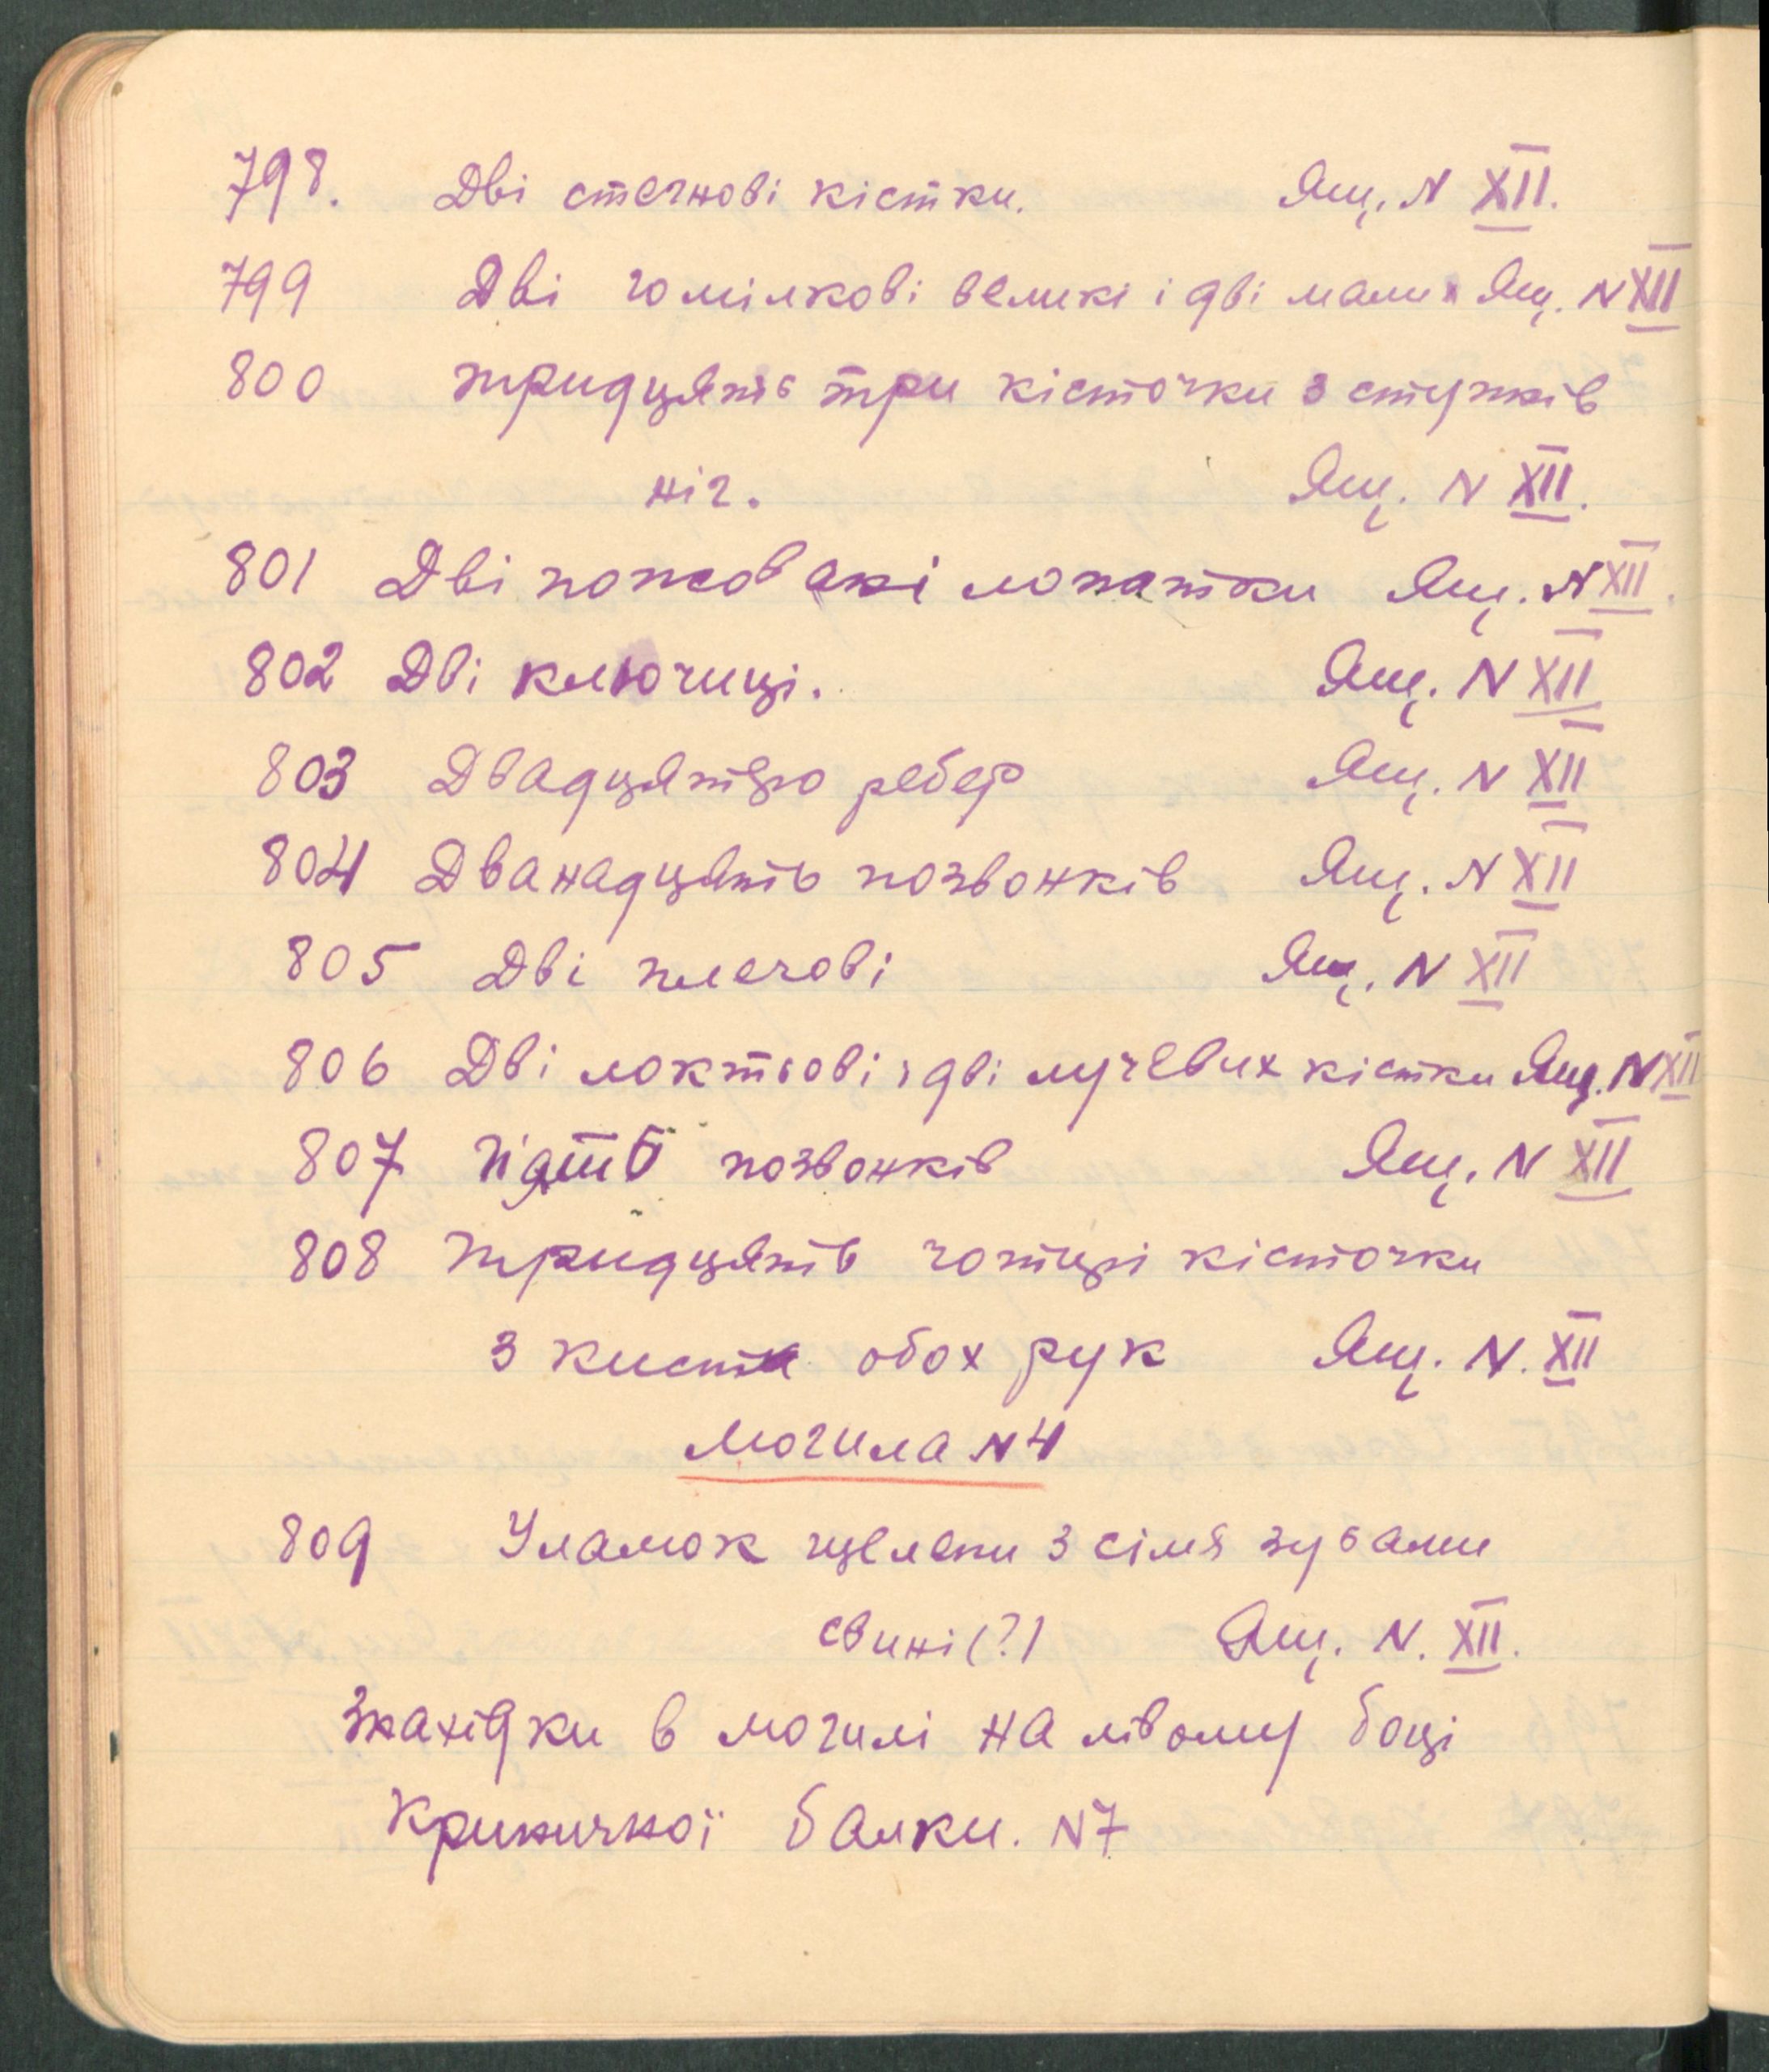 798. Дві стегнові кістки. Ящ. N XII.
799 Дві гомілкові великі і дві малих Ящ. N XII
800 тридцять три кісточки з ступнів
ніг. Ящ. N XII.
801 Дві лопатки Ящ. N XII.
802 Дві ключиці. Ящ. N XII
803 Двадцятеро ребер Ящ. N XII
804 Дванадцять позвонків Ящ. N XII
805 Дві плечові Ящ. N XII
806 Дві локтьові і дві лучевих кістки Ящ. N XII
807 П'ять позвонків Ящ. N XII
808 тридцять чотирі кісточки
з кисти обох рук Ящ. N. XII
Могила N 4
809 Уламок щелепи з сімя зубами
свині (?) Ящ. N. XII.
Знахідки в могилі на лівому боці
Криничної балки. N 7